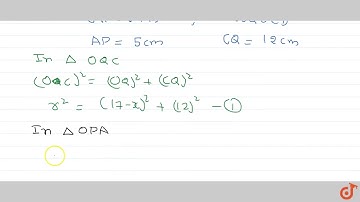 AP = 5 cm CQ = 12 cm
In △ OQC
(OQC)² = (OQ)² + (CQ)²
r² = (17-x)² + (12)² - ①
In △ OPA